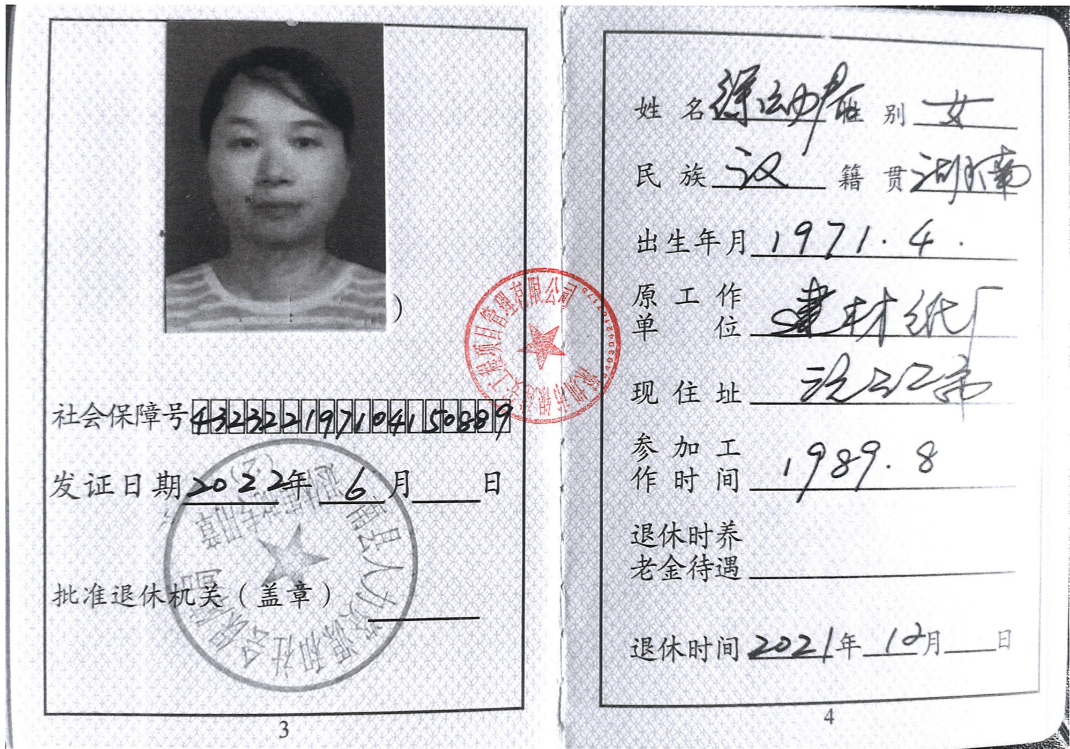 )
社会保障号 432322197104150889
发证日期 2022年 6 月 日
批准退休机关（盖章）
3
姓名 性别 女
民族 汉 籍贯 湖南
出生年月 1971.4.
原工作单位 建材纸厂
现住址 沅江市
参加工作时间 1989.8
退休时养老金待遇
退休时间 2021年 12月 日
4